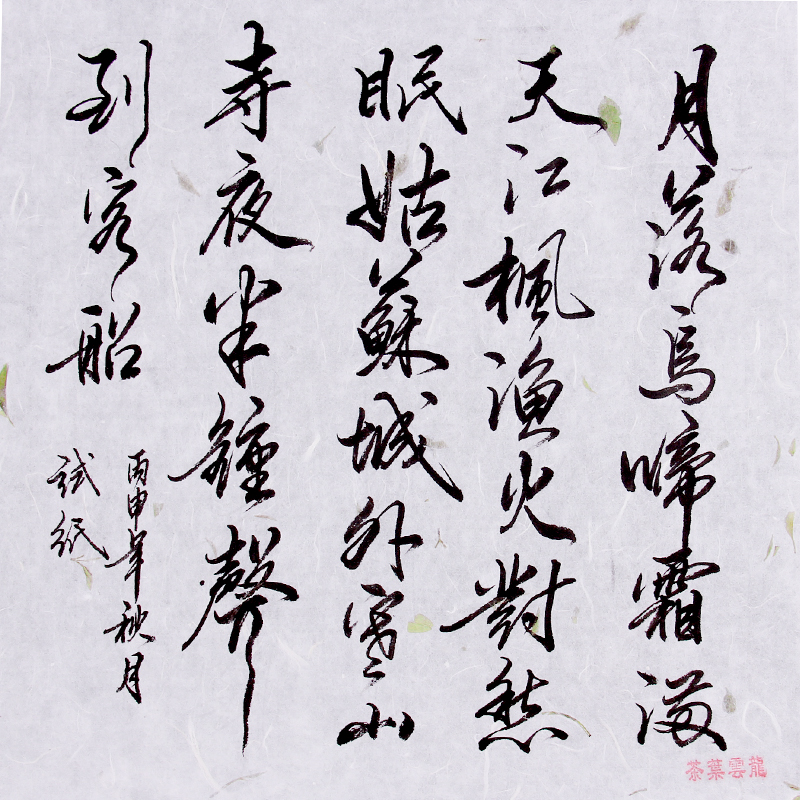 月落烏啼霜滿
天江楓漁火對愁
眠姑蘇城外寒山
寺夜半鍾聲
到客船
丙申年秋月
試紙
茶葉雲龍